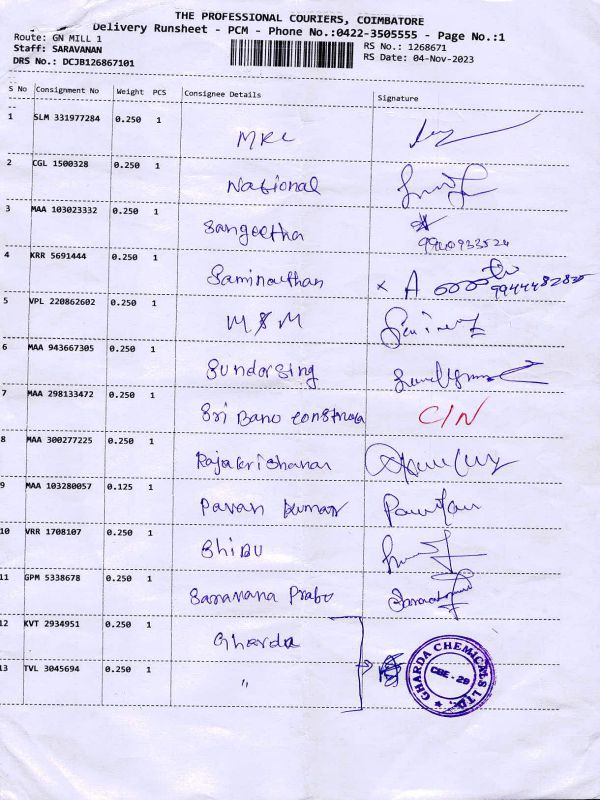 THE PROFESSIONAL COURIERS, COIMBATORE
Delivery Runsheet - PCM - Phone No.:0422-3505555 - Page No.:1
Route: GN MILL 1
RS No.: 1268671
Staff: SARAVANAN
RS Date: 04-Nov-2023
DRS No.: DCJB126867101
S No Consignment No Weight PCS Consignee Details Signature
1 SLM 331977284 0.250 1 MRC
2 CGL 1500328 0.250 1 National
3 MAA 103023332 0.250 1 Sangeetha
9940933524
4 KRR 5691444 0.250 1 Saminathan
9944482825
5 VPL 220862602 0.250 1 MSM
6 MAA 943667305 0.250 1 Sundarsing
7 MAA 298133472 0.250 1 Sri Bano C/N
8 MAA 300277225 0.250 1 Rajakrishanan
9 MAA 103280057 0.125 1 Pavan Kumar
10 VRR 1708107 0.250 1 Shibu
11 GPM 5338678 0.250 1 Saravana Prabo
12 KVT 2934951 0.250 1 Gharda
13 TVL 3045694 0.250 1 "
GHARDA CHEMICALS LTD.
CBE - 29